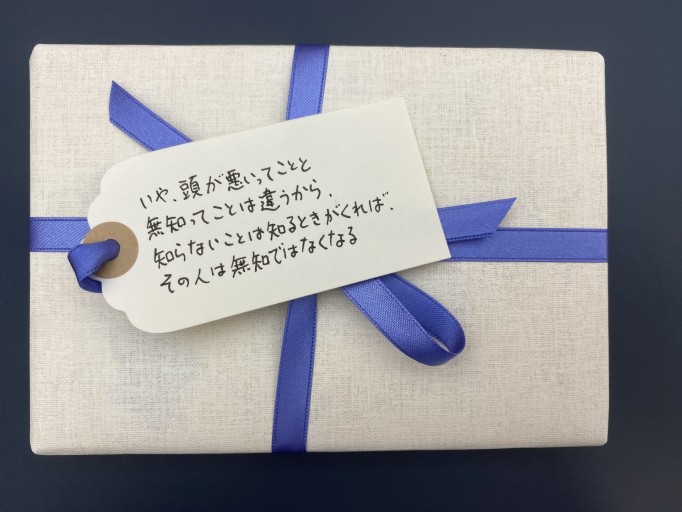 いや、頭が悪いってことと
無知ってことは違うから、
知らないことは知るときがくれば、
その人は無知ではなくなる